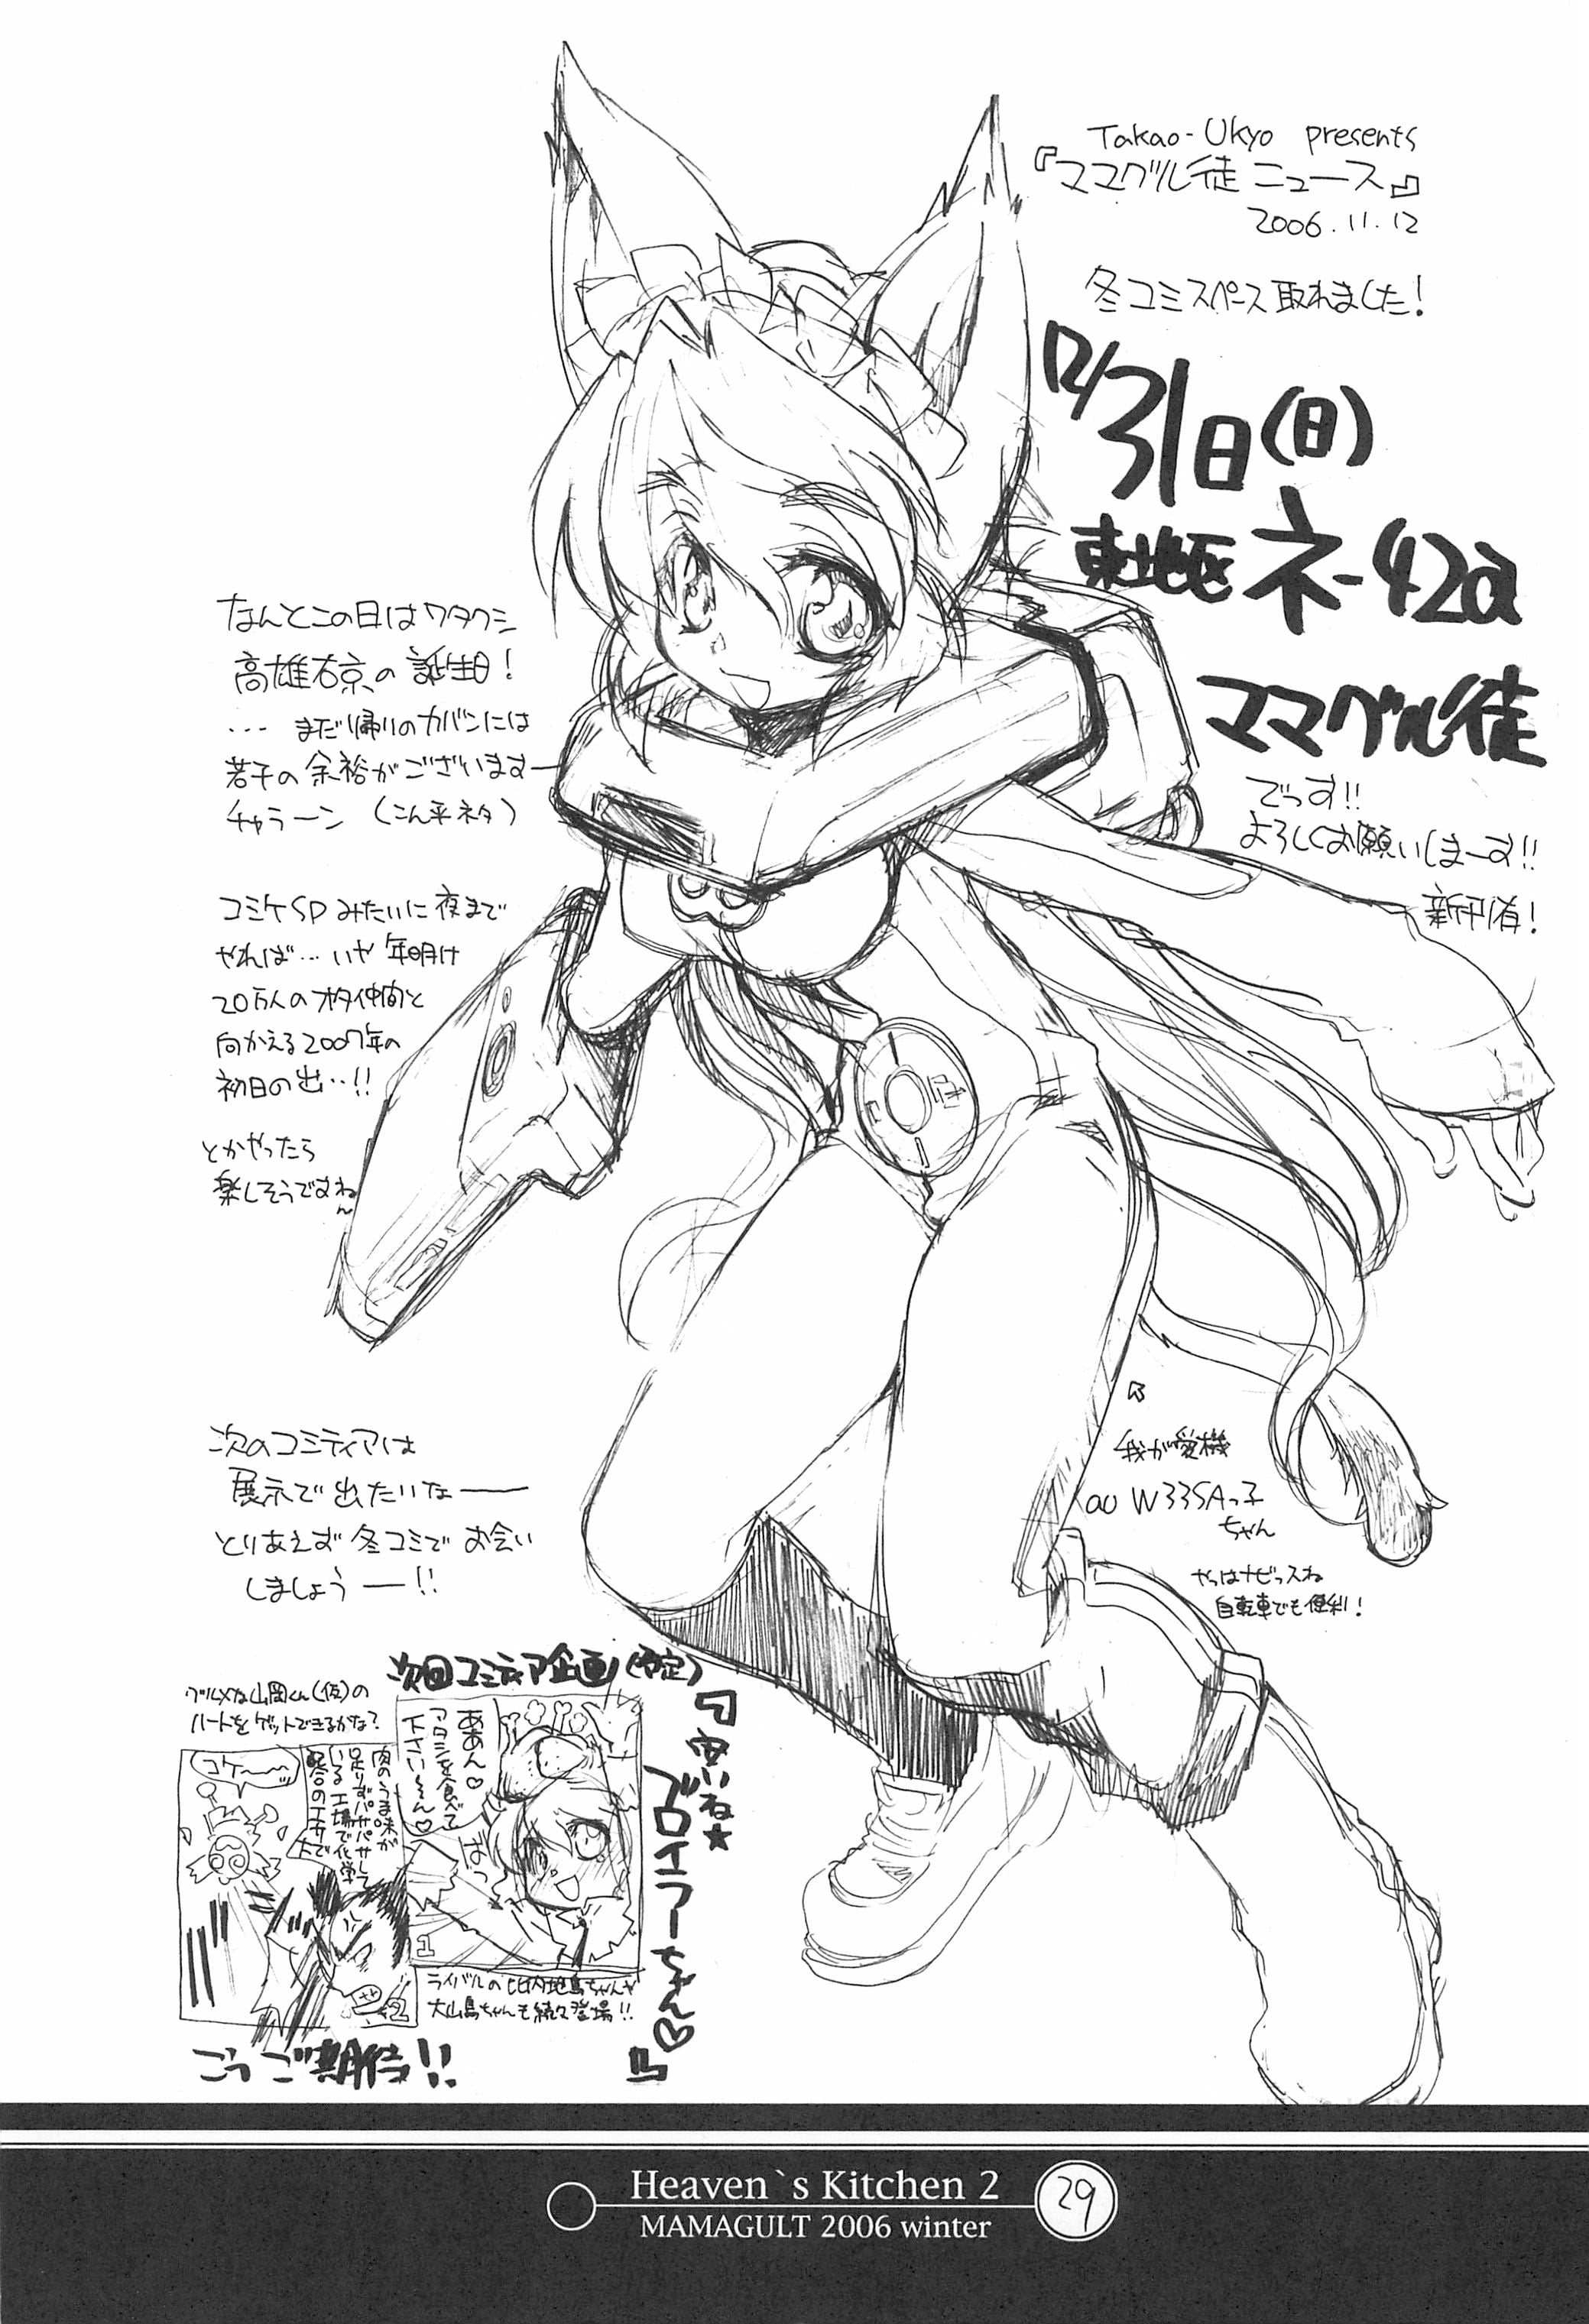 Takao-Ukyo presents
『ママグル徒ニュース』
2006.11.12
冬コミスペース取れました!
12/31日(日)
東地区 ネ-42a
ママグル徒
でっす!!
よろしくお願いしまーす!!
新刊有!
なんとこの日はワタクシ
高雄右京の誕生日!
… まだ帰りのカバンには
若干の余裕がございますー
チャラーン (こん平ネタ)
コミケSPみたいに夜まで
やれば…いや年明け
20万人のオタ仲間と
向かえる2007年の
初日の出…!!
とかやったら
楽しそうですねん
次のコミティアは
展示で出たいなー
とりあえず冬コミでお会い
しましょうー!!
我が愛機
au W33SAっ子
ちゃん
やっぱナビっスね
自転車でも便利!
次回コミティア企画(予定)
『安いね★
ブロイラーちゃん♡
』
グルメな山岡くん(仮)の
ハートをゲットできるかな?
ああん♡
アタシを食べて
下さい〜ん♡
1
肉のうま味が
足りずパサパサして
いる 工場で化学
配合のエサで
コケ〜〜ッ
2
ライバルの比内地鳥ちゃんや
大山鳥ちゃんも続々登場!!
ごうご期待!!
Heaven`s Kitchen 2
MAMAGULT 2006 winter
29